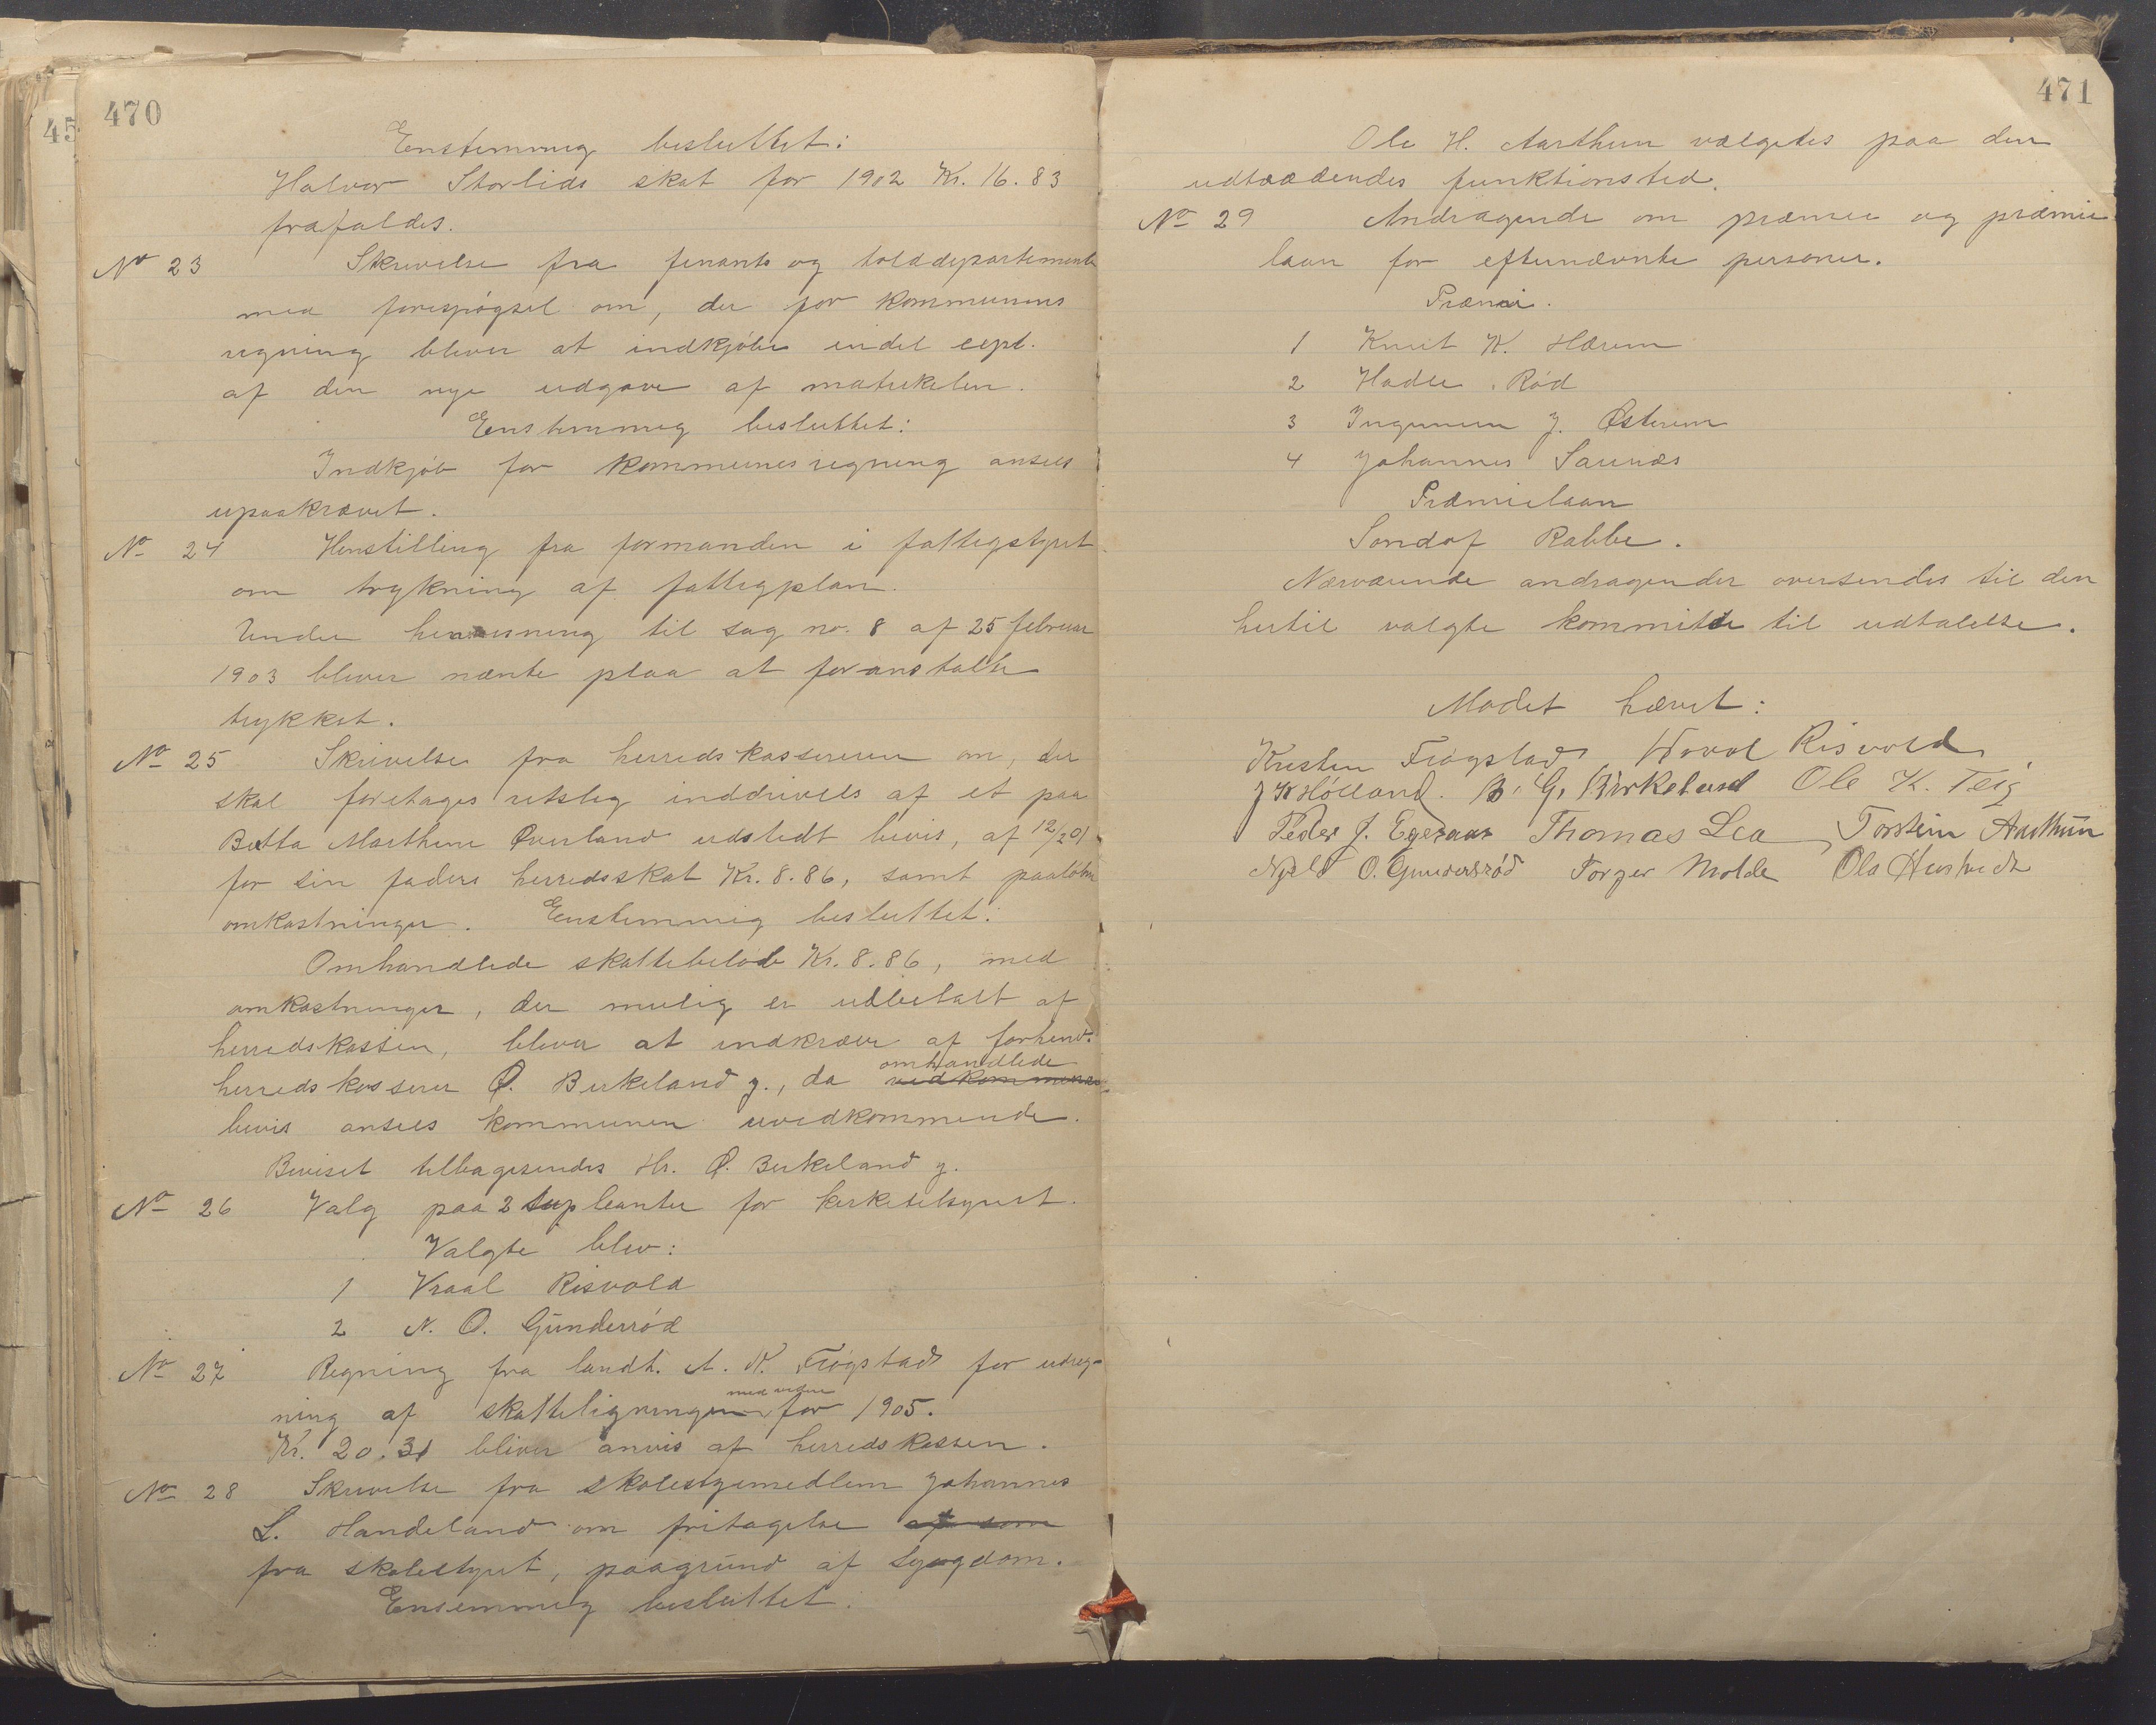 470
Enstemmig besluttet:
Halvor Storlids skat for 1902 Kr. 16.83
frafaldes.
No 23 Skrivelse fra finants og tolddepartemente
med forespögsel om, der for kommunens
regning bliver at indkjöbe endel expl.
af den nye udgave af matrikelen.
Enstemmig besluttet:
Indkjöb for kommunes regning ansees
upaakrævet.
No 24 Henstilling fra formanden i fattigstyret
om trykning af fattigplan.
Under henvisning til sag no. 8 af 25 februar
1903 bliver nænte plaa at foranstalte
trykket.
No 25 Skrivelse fra herredskassereren om, der
skal foretages retslig inddrivels af et paa
Berta Marthene Øverland udstedt bevis, af 12/2 01
for sin faders herredsskat Kr. 8.86, samt paalöbne
omkostninger. Enstemmig besluttet:
Omhandlede skattebelöb Kr. 8.86, med
omkostninger, der mulig er udbetalt af
herredskassen, bliver at indkræve af forhenv.
omhandlede
herredskasserer Ø. Birkeland y., da vedkommende
bevis ansees kommunen uvedkommende.
Beviset tilbagesendes Hr. Ø. Birkeland y.
No 26 Valg paa 2 supleanter for kirketilsynet.
Valgte blev:
1 Vraal Risvold
2 N. O. Gunderröd
No 27 Regning fra landh. A. K. Frögstad for udreg-
med videre
ning af skatteligningen for 1905.
Kr. 20.31 bliver anvis af herredskassen.
No 28 Skrivelse fra skolestyremedlem Johannes
L. Handeland om fritagelse af som
fra skolestyret, paagrund af sygdom.
Ensemmig besluttet.
471
Ole H. Aarthun vælgedes paa den
udtrædendes funktionsted.
No 29 Andragende om præmie og præmie
laan for efternævnte personer.
Præmie.
1 Knut K. Hærem
2 Hadle Röd
3 J. Østerem
4 Johannes Saunæs
Præmielaan
Sondof Rabbe.
Nærværende andragender oversendes til den
hertil valgte kommitte til udtalelse.
Mödet hævet:
Kristen Frögstad Wraal Risvold
J K Hölland. B. G. Birkeland Ole K. Teig
Peder J. Egeraas Thomas Lea Torstein Aarthun
Njeld O. Gundersröd Torger Molde Ola Hustvedt